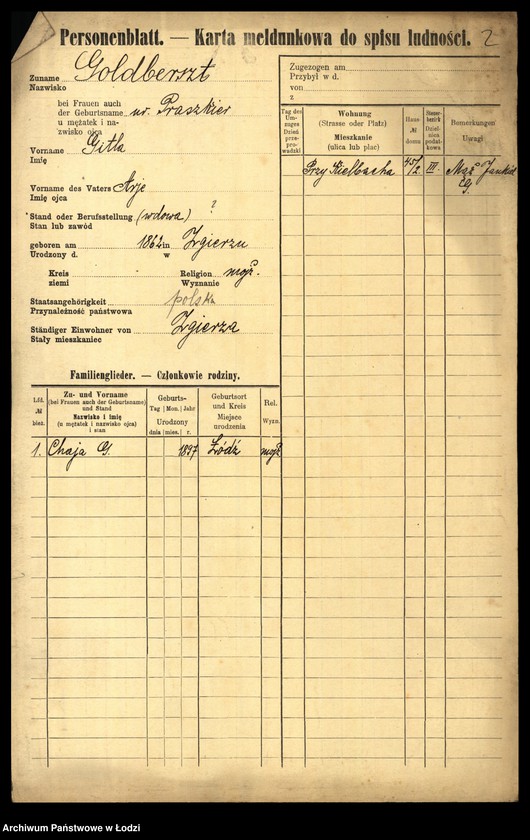 Personenblatt. — Karta meldunkowa do spisu ludności. 2
Zuname Goldberszt
Nazwisko
bei Frauen auch
der Geburtsname ur. Praszkier
u mężatek i na-
zwisko ojca
Vorname Gitla
Imię
Vorname des Vaters Arje
Imię ojca
Stand oder Berufsstellung (wdowa) ?
Stan lub zawód
geboren am 1862 in Zgierzu
Urodzony d. w
Kreis Religion mojż.
ziemi Wyznanie
Staatsangehörigkeit polska
Przynależność państwowa
Ständiger Einwohner von Zgierza
Stały mieszkaniec
Zugezogen am
Przybył w d.
von
z
Tag des Umzuges Dzień przeprowadzki
Wohnung
(Strasse oder Platz)
Mieszkanie
(ulica lub plac)
Haus № domu
Steuerbezirk Dzielnica podatkowa
Bemerkungen
Uwagi
Przy Kielbacha 45/2 III Mąż Jankiel
G.
Familienglieder. — Członkowie rodziny.
Lfd. № bież.
Zu- und Vorname
(bei Frauen auch der Geburtsname)
und Stand
Nazwisko i imię
(u mężatek i nazwisko ojca)
i stan
Geburts-
Tag Mon. Jahr
Urodzony
dnia mies. r.
Geburtsort
und Kreis
Miejsce
urodzenia
Rel.
Wyzn.
1. Chaja G. 1897 Łódź mojż.
Archiwum Państwowe w Łodzi